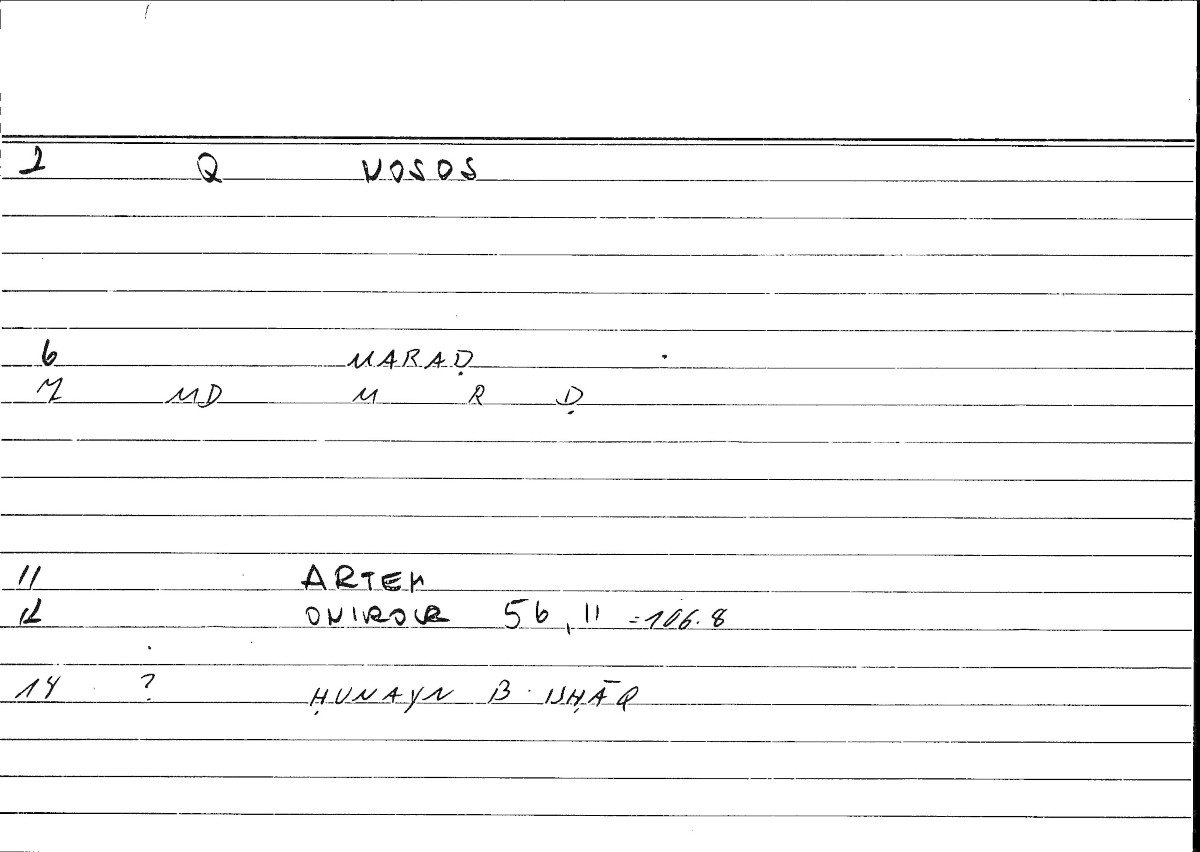 1 Q NOSOS
6 MARAḌ
7 MD M R Ḍ
11 ARTEM
12 ONIROCR 56,11 =106.8
14 ? ḤUNAYN B. ISḤĀQ